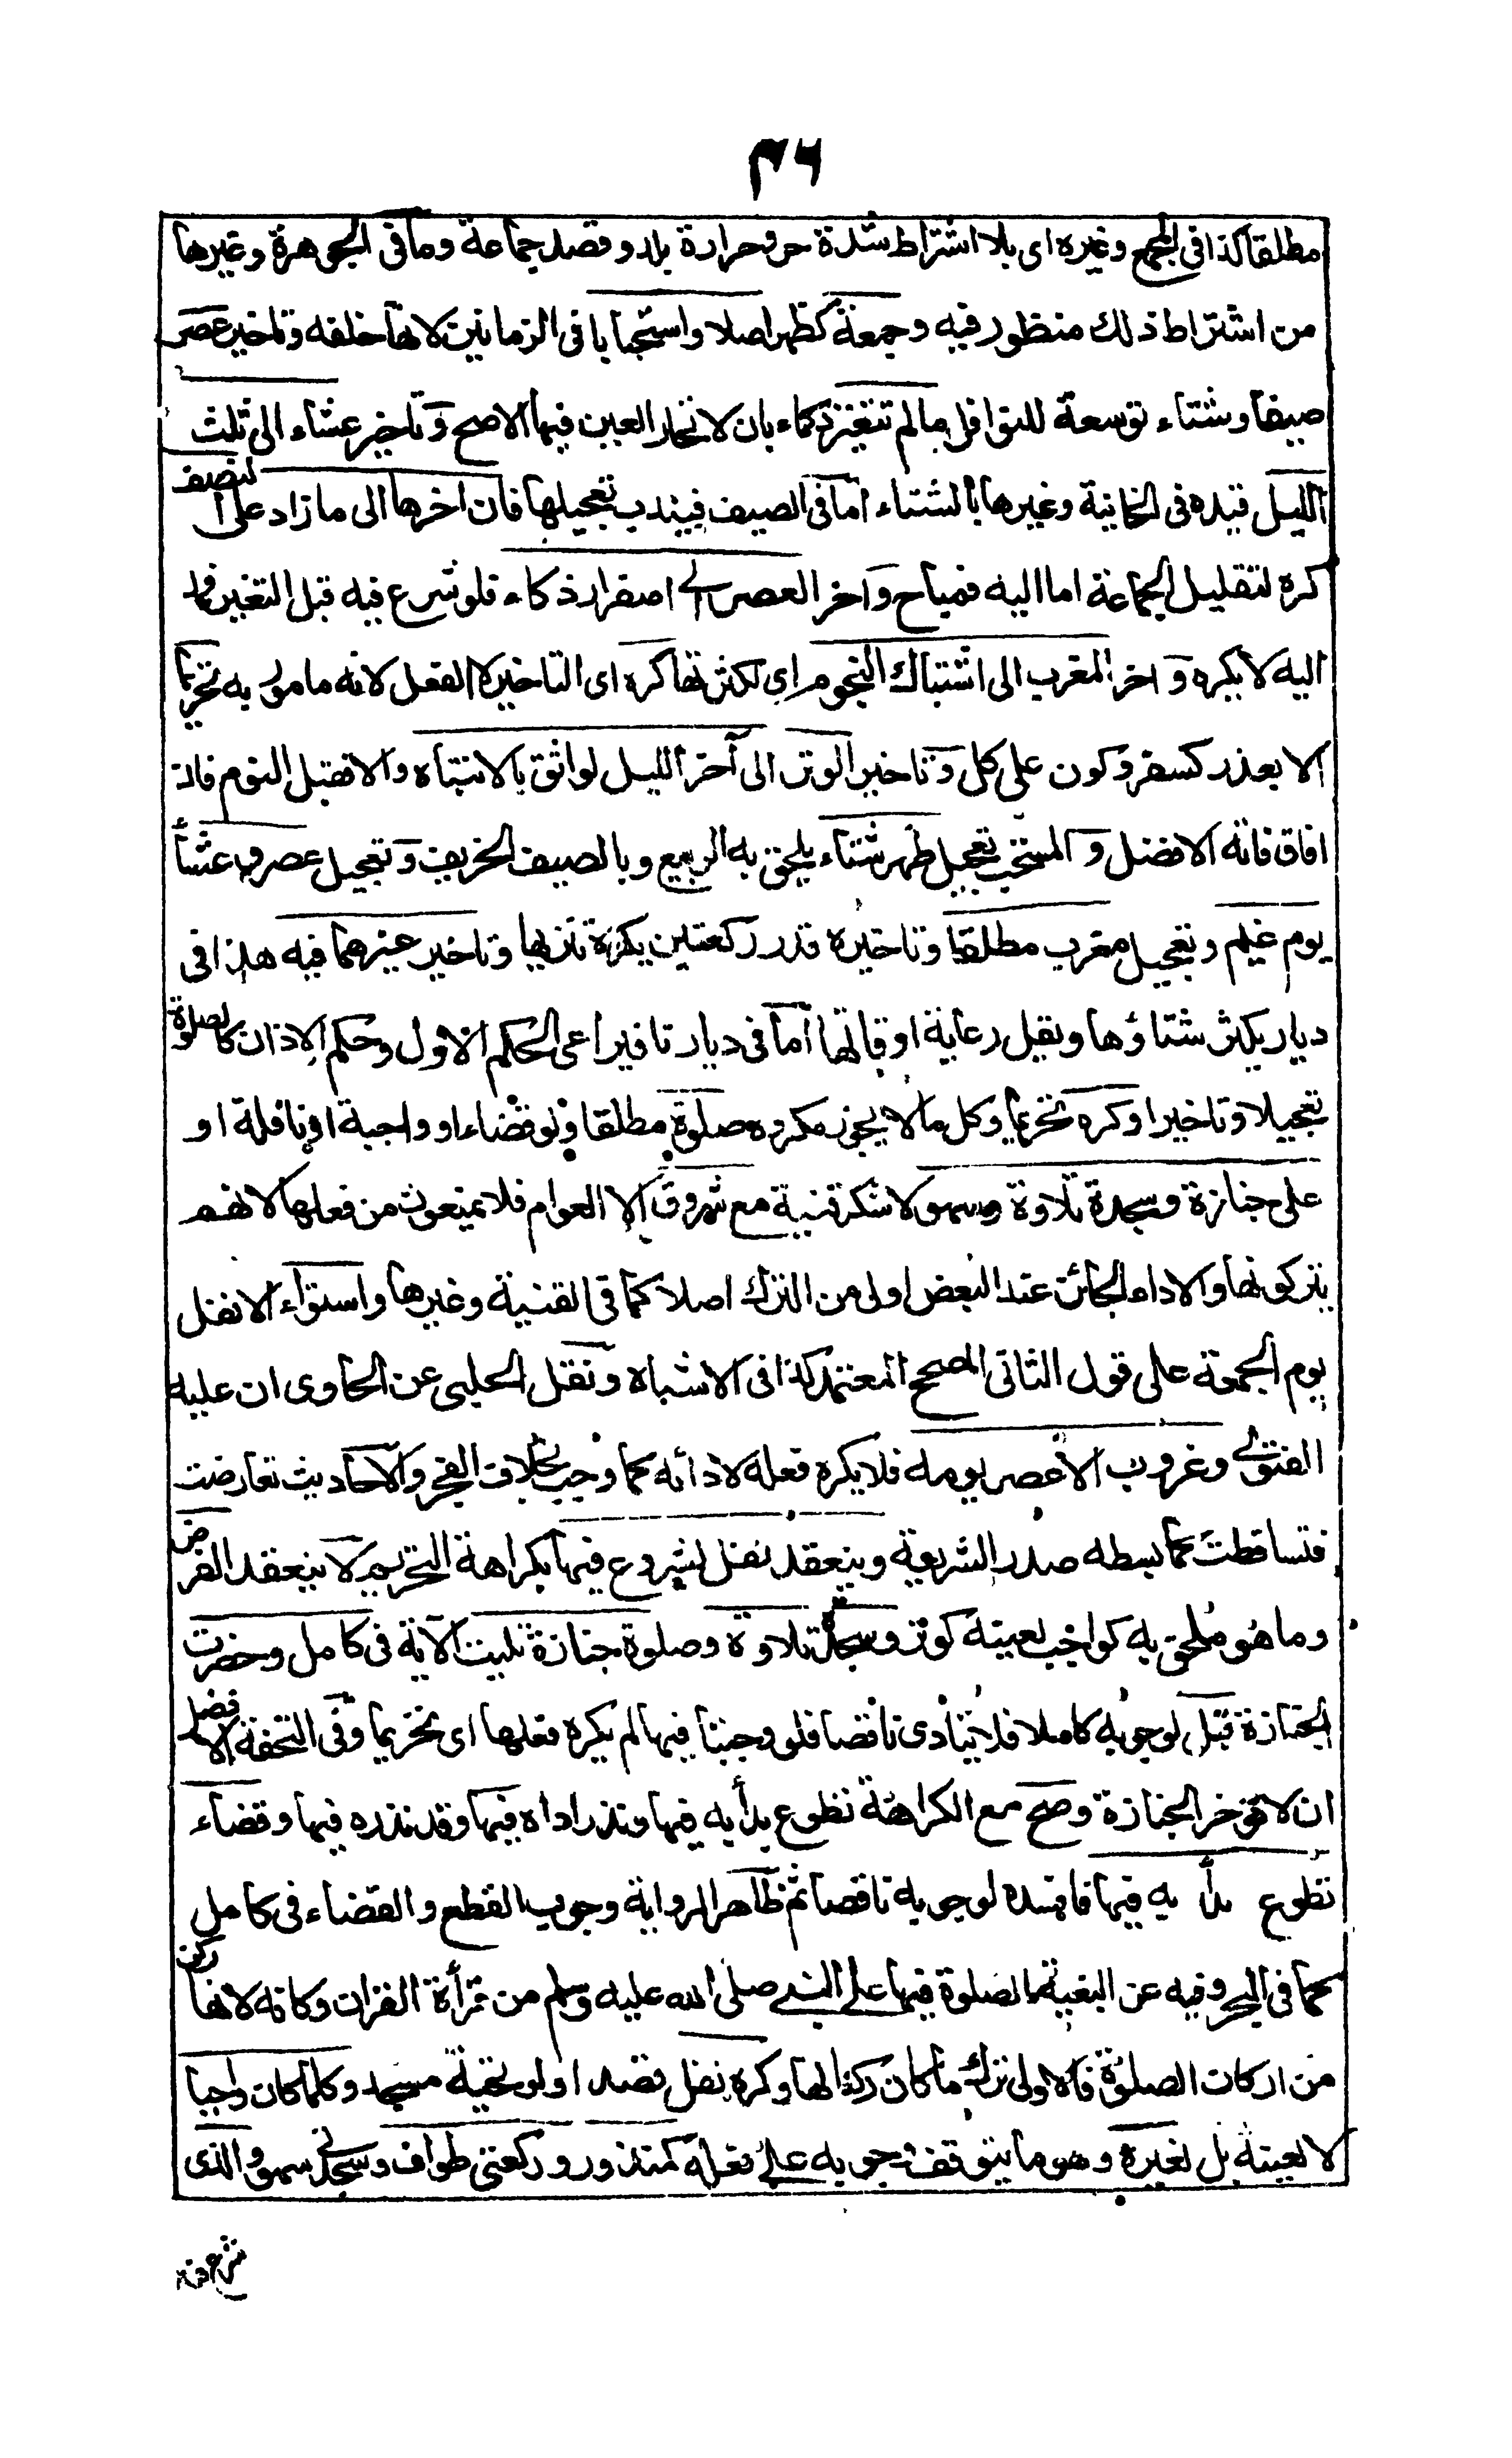 ٣٦
مطلقا كذا فى المجمع وغيره اى بلا اشتراط شدة حر وحرارة بلد وقصد جماعة وما فى الجوهرة وغيرها
من اشتراط ذلك منظور فيه وجمعة كظهر اصلا واستحبابا فى الزمانين لانها خلفه وتاخير عصر
صيفا وشتاء توسعة للنوافل ما لم تتغير ذكاء بان لا تحار العين فيها الاصح وتاخير عشاء الى ثلث
الليل قيده فى الخانية وغيرها بالشتاء اما فى الصيف فيندب تعجيلها فان اخرها الى ما زاد على النصف
كره لتقليل الجماعة اما اليه فمباح واخر العصر الى اصفرار ذكاء فلو شرع فيه قبل التغير فمد
اليه لا يكره و اخر المغرب الى اشتباك النجوم اى لكثرتها كره اى التاخير لا الفعل لانه مامور به تحريما
الا بعذر كسفر وكون على كل وتاخير الوتر الى آخر الليل لواثق بالانتباه والا فقبل النوم فان
افاق فاته الافضل و المستحب تعجيل ظهر شتاء يلحق به الربيع وبالصيف الخريف وتعجيل عصر وعشأ
يوم غيم وتعجيل مغرب مطلقا وتاخيره قدر ركعتين يكره تنزيها وتاخير غيرهما فيه هذا فى
ديار يكثر شتاؤها ويقل رعاية اوقاتها اما فى ديارنا فيراعى الحكم الاول وحكم الاذان كالصلوة
تعجيلا وتاخيرا وكره تحريما وكل ما لا يجوز مكروه صلوة مطلقا ولو قضاء او واجبة او نافلة او
على جنازة وسجدة تلاوة وسهو لا شكر قنية مع شروق الا العوام فلا يمنعون من فعلها لانهم
يتركونها والاداء الجائز عند البعض اولى من الترك اصلا كما فى القنية وغيرها واستواء الا نفل
يوم الجمعة على قول الثانى المصحح المعتمد كذا فى الاشباه ونقل الحلبى عن الحاوى ان عليه
الفتوى وغروب الا عصر يومه فلا يكره فعله لادائه كما وجب بخلاف الفجر والاحاديث تعارضت
فتساقطت كما بسطه صدر الشريعة وينعقد نفل بشروع فيها بكراهة التحريم لا ينعقد الفرض
وما هو ملحق به كواجب لعينه كوتر وسجدة تلاوة وصلوة جنازة تليت الآية فى كامل وحضرت
الجنازة قبل لوجوبه كاملا فلا يتأدى ناقصا فلو وجبتا فيها لم يكره فعلها اى تحريما وفى التحفة الافضل
ان لا تؤخر الجنازة وصح مع الكراهة تطوع بدأ به فيها ونذر اداه فيها وقد نذره فيها وقضاء
تطوع بدأ به فيها فافسده لوجوبه ناقصا ثم ظاهر الرواية وجوب القطع والقضاء فى كامل
كما فى البحر وفيه عن البغية الصلوة فيها على النبى صلى الله عليه وسلم من قرأة القران وكانه لانها ركن
من اركان الصلوة فالاولى ترك ما كان ركنا لها وكره نفل قصدا ولو تحية مسجد وكلما كان واجبا
لا لعينه بل لغيره وهو ما يتوقف وجوبه على فعله كمنذور وركعتى طواف وسجدتى سهو والذى